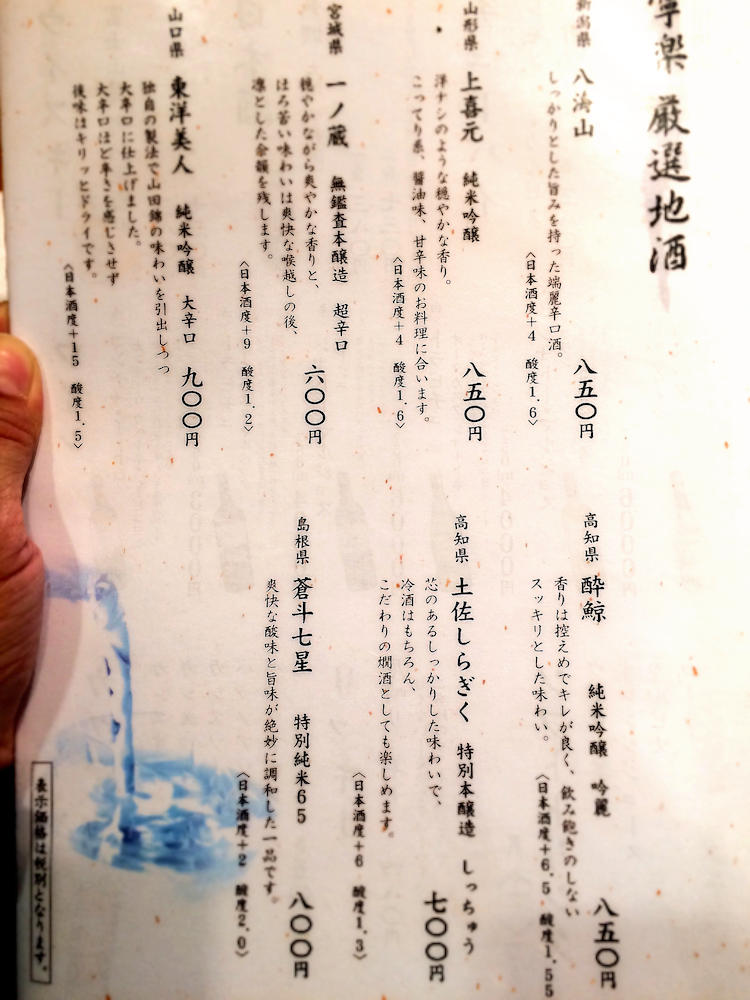 寧楽 厳選地酒
新潟県 八海山 八五〇円
しっかりとした旨みを持った端麗辛口酒。
〈日本酒度+4 酸度1.6〉
山形県 上喜元 純米吟醸 八五〇円
洋ナシのような穏やかな香り。
こってり系、醤油味、甘辛味のお料理に合います。
〈日本酒度+4 酸度1.6〉
宮城県 一ノ蔵 無鑑査本醸造 超辛口 六〇〇円
穏やかながら爽やかな香りと、
ほろ苦い味わいは爽快な喉越しの後、
凛とした余韻を残します。
〈日本酒度+9 酸度1.2〉
山口県 東洋美人 純米吟醸 大辛口 九〇〇円
独自の製法で山田錦の味わいを引出しつつ
大辛口に仕上げました。
大辛口ほど辛さを感じさせず
後味はキリッとドライです。
〈日本酒度+15 酸度1.5〉
高知県 酔鯨 純米吟醸 吟麗 八五〇円
香りは控えめでキレが良く、飲み飽きのしない
スッキリとした味わい。
〈日本酒度+6.5 酸度1.55
高知県 土佐しらぎく 特別本醸造 しっちゅう 七〇〇円
芯のあるしっかりした味わいで、
冷酒はもちろん、
こだわりの燗酒としても楽しめます。
〈日本酒度+6 酸度1.3〉
島根県 蒼斗七星 特別純米65 八〇〇円
爽快な酸味と旨味が絶妙に調和した一品です。
〈日本酒度+2 酸度2.0〉
表示価格は税別となります。